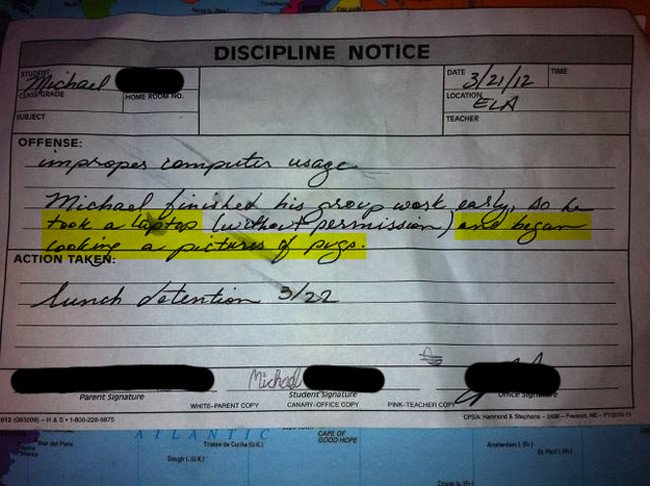 DISCIPLINE NOTICE
STUDENT Michael
CLASS/GRADE HOME ROOM NO.
SUBJECT
DATE 3/21/12 TIME
LOCATION ELA
TEACHER
OFFENSE:
improper computer usage
Michael finished his group work early, so he
took a laptop (without permission) and began
looking a pictures of pugs.
ACTION TAKEN:
lunch detention 3/22
Michael
Parent Signature Student Signature Office Signature
WHITE-PARENT COPY CANARY-OFFICE COPY PINK-TEACHER COPY
012 (083209) – H & S • 1-800-228-9875 CPSIA: Hammond & Stephens – 2496 – Fremont, NE – FY2010-11
ATLANTIC
Mar del Plata
Tristan da Cunha (U.K.)
CAPE OF
GOOD HOPE
Amsterdam I. (Fr.)
St. Paul I. (Fr.)
Gough I. (U.K.)